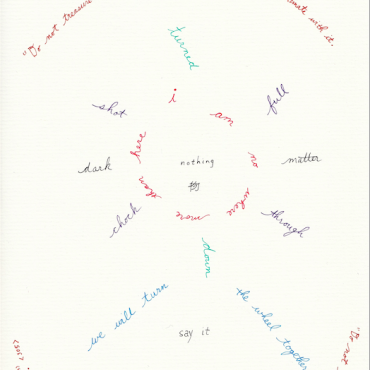 "Do not treasure
with it.
turned
i
am
no
where
more
than
here
shot
full
dark
nothing
matter
chock
through
down
we will turn
the wheel together
say it
"Do not